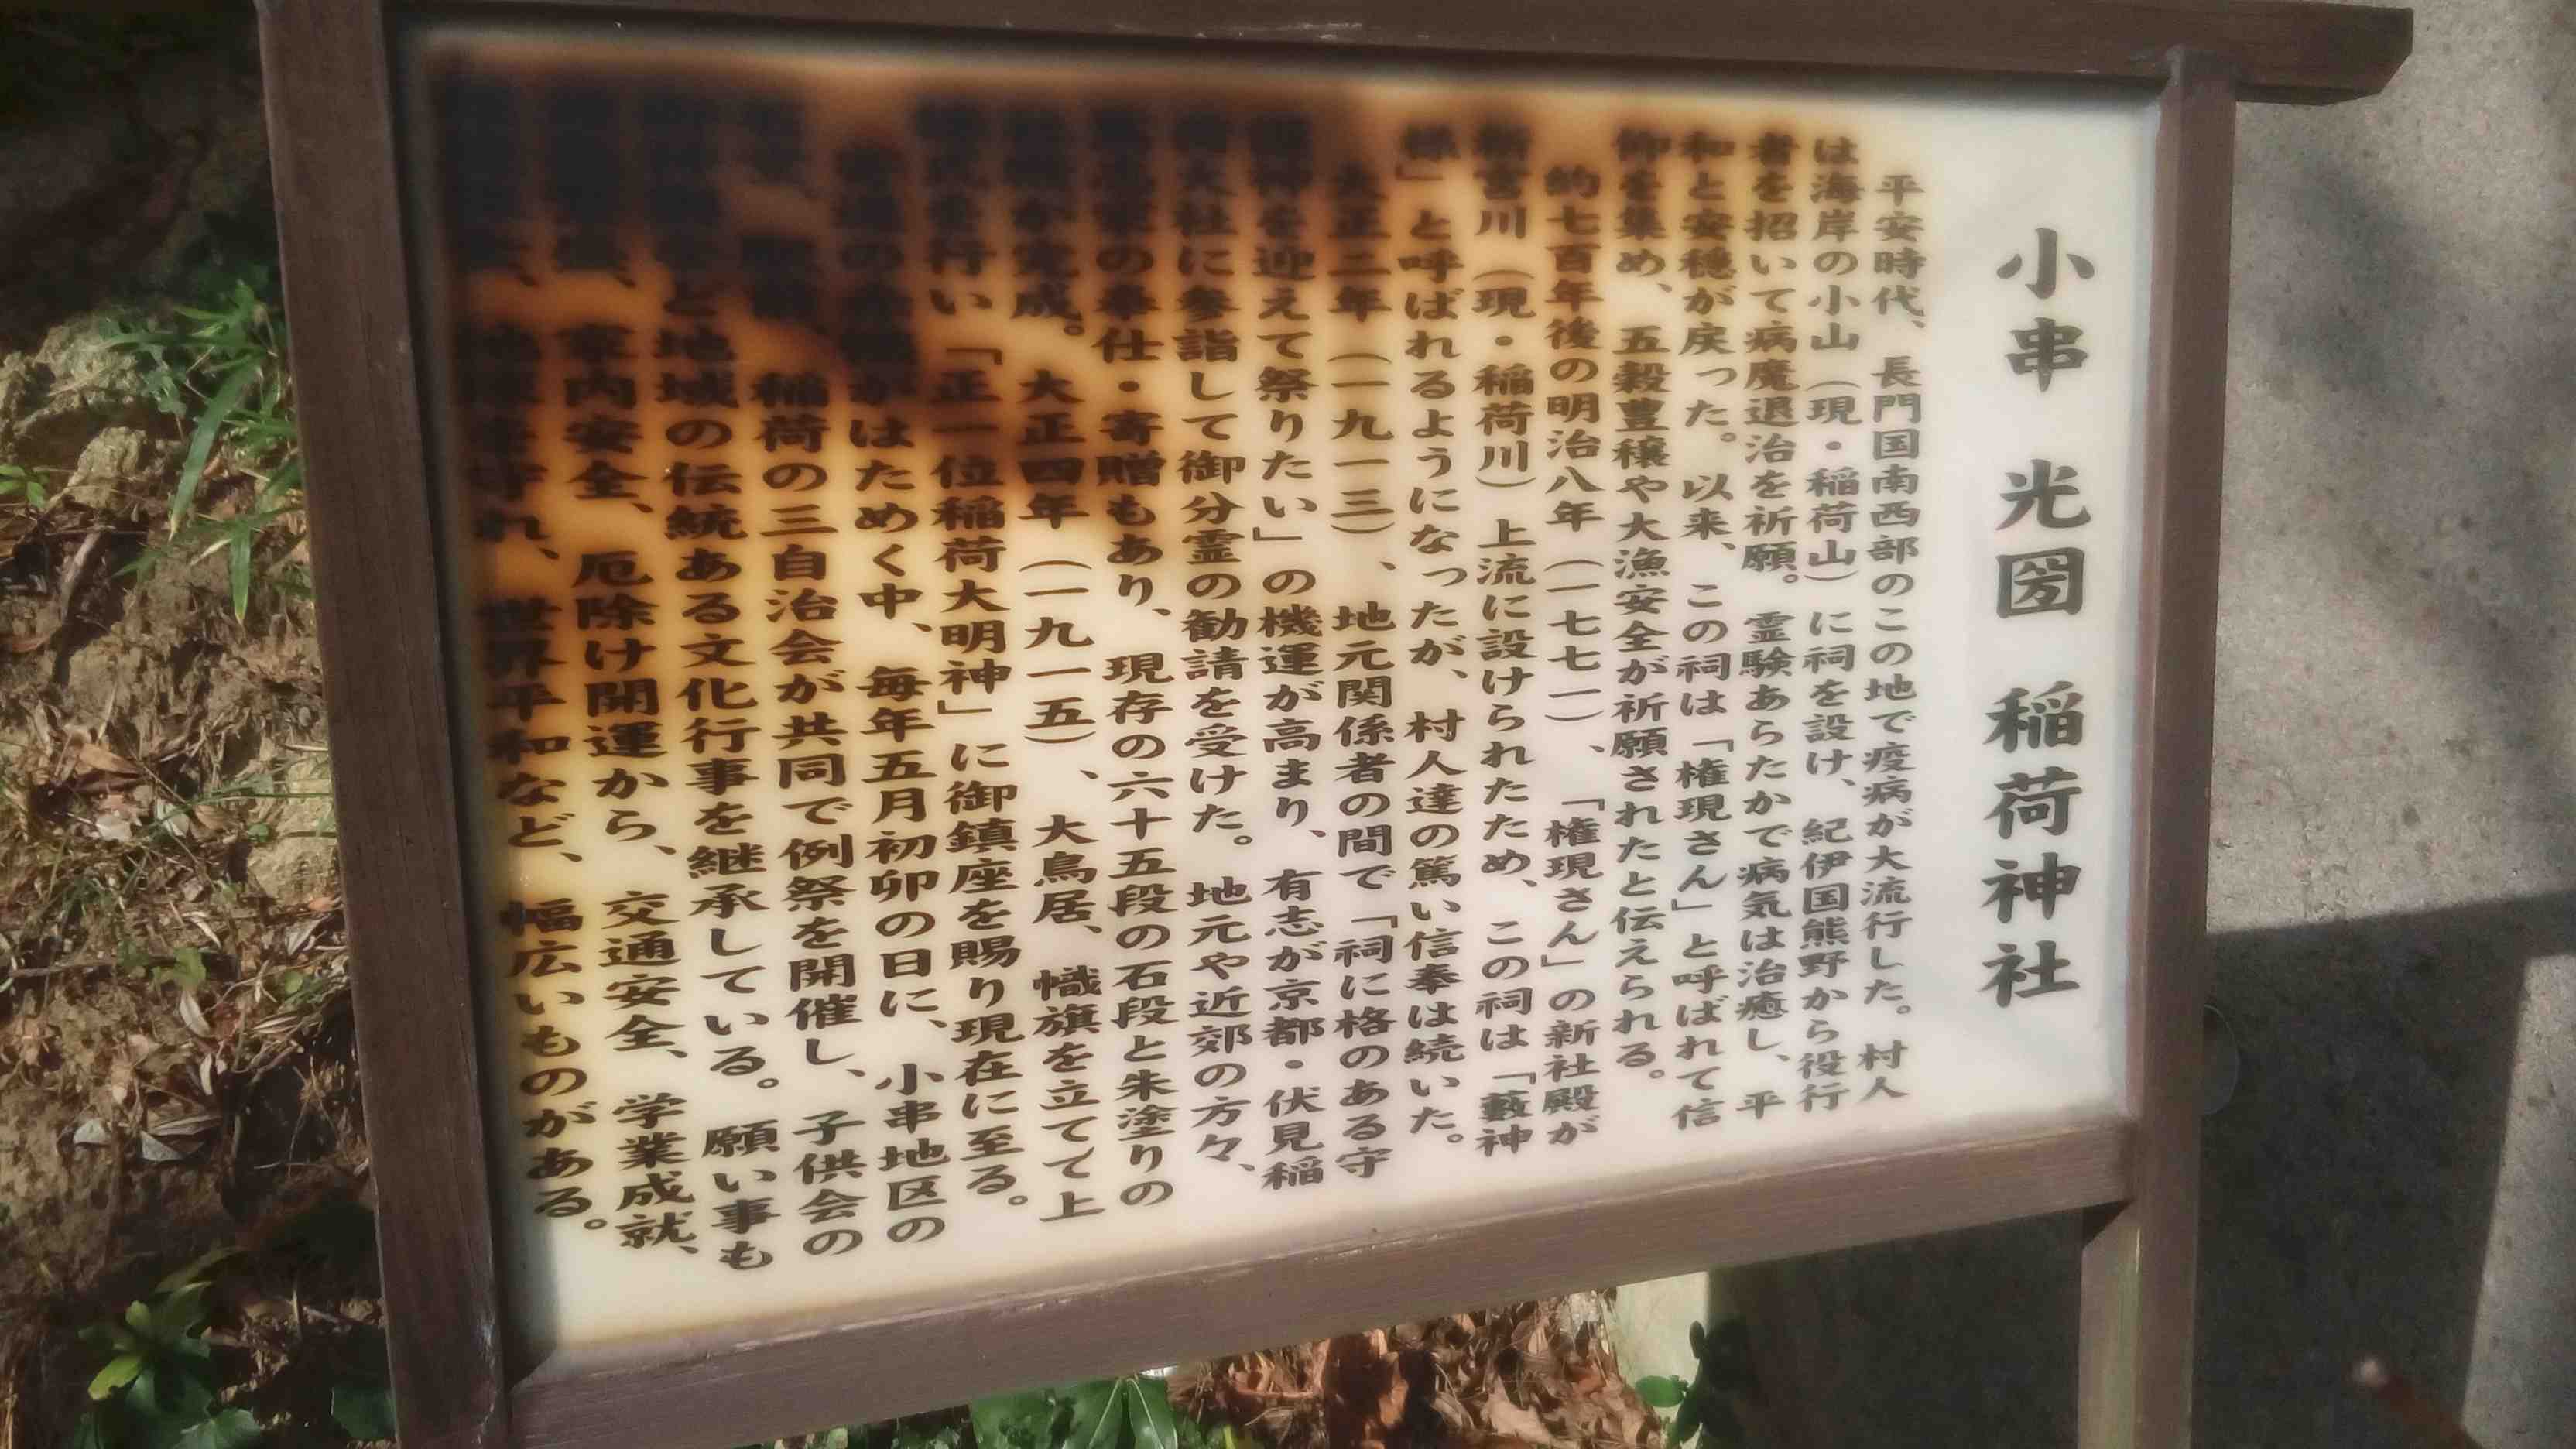 小串 光圀 稲荷神社
平安時代、長門国南西部のこの地で疫病が大流行した。村人
は海岸の小山（現・稲荷山）に祠を設け、紀伊国熊野から役行
者を招いて病魔退治を祈願。霊験あらたかで病気は治癒し、平
和と安穏が戻った。以来、この祠は「権現さん」と呼ばれて信
仰を集め、五穀豊穣や大漁安全が祈願されたと伝えられる。
約七百年後の明治八年（一七七一）、「権現さん」の新社殿が
新宮川（現・稲荷川）上流に設けられたため、この祠は「藪神
様」と呼ばれるようになったが、村人達の篤い信奉は続いた。
大正二年（一九一三）、地元関係者の間で「祠に格のある守
護神を迎えて祭りたい」の機運が高まり、有志が京都・伏見稲
荷大社に参詣して御分霊の勧請を受けた。地元や近郊の方々、
の奉仕・寄贈もあり、現存の六十五段の石段と朱塗りの
が完成。大正四年（一九一五）、大鳥居、幟旗を立てて上
を行い「正一位稲荷大明神」に御鎮座を賜り現在に至る。
の がはためく中、毎年五月初卯の日に、小串地区の
稲荷の三自治会が共同で例祭を開催し、子供会の
と地域の伝統ある文化行事を継承している。願い事も
、家内安全、厄除け開運から、交通安全、学業成就、
、 守れ、世界平和など、幅広いものがある。